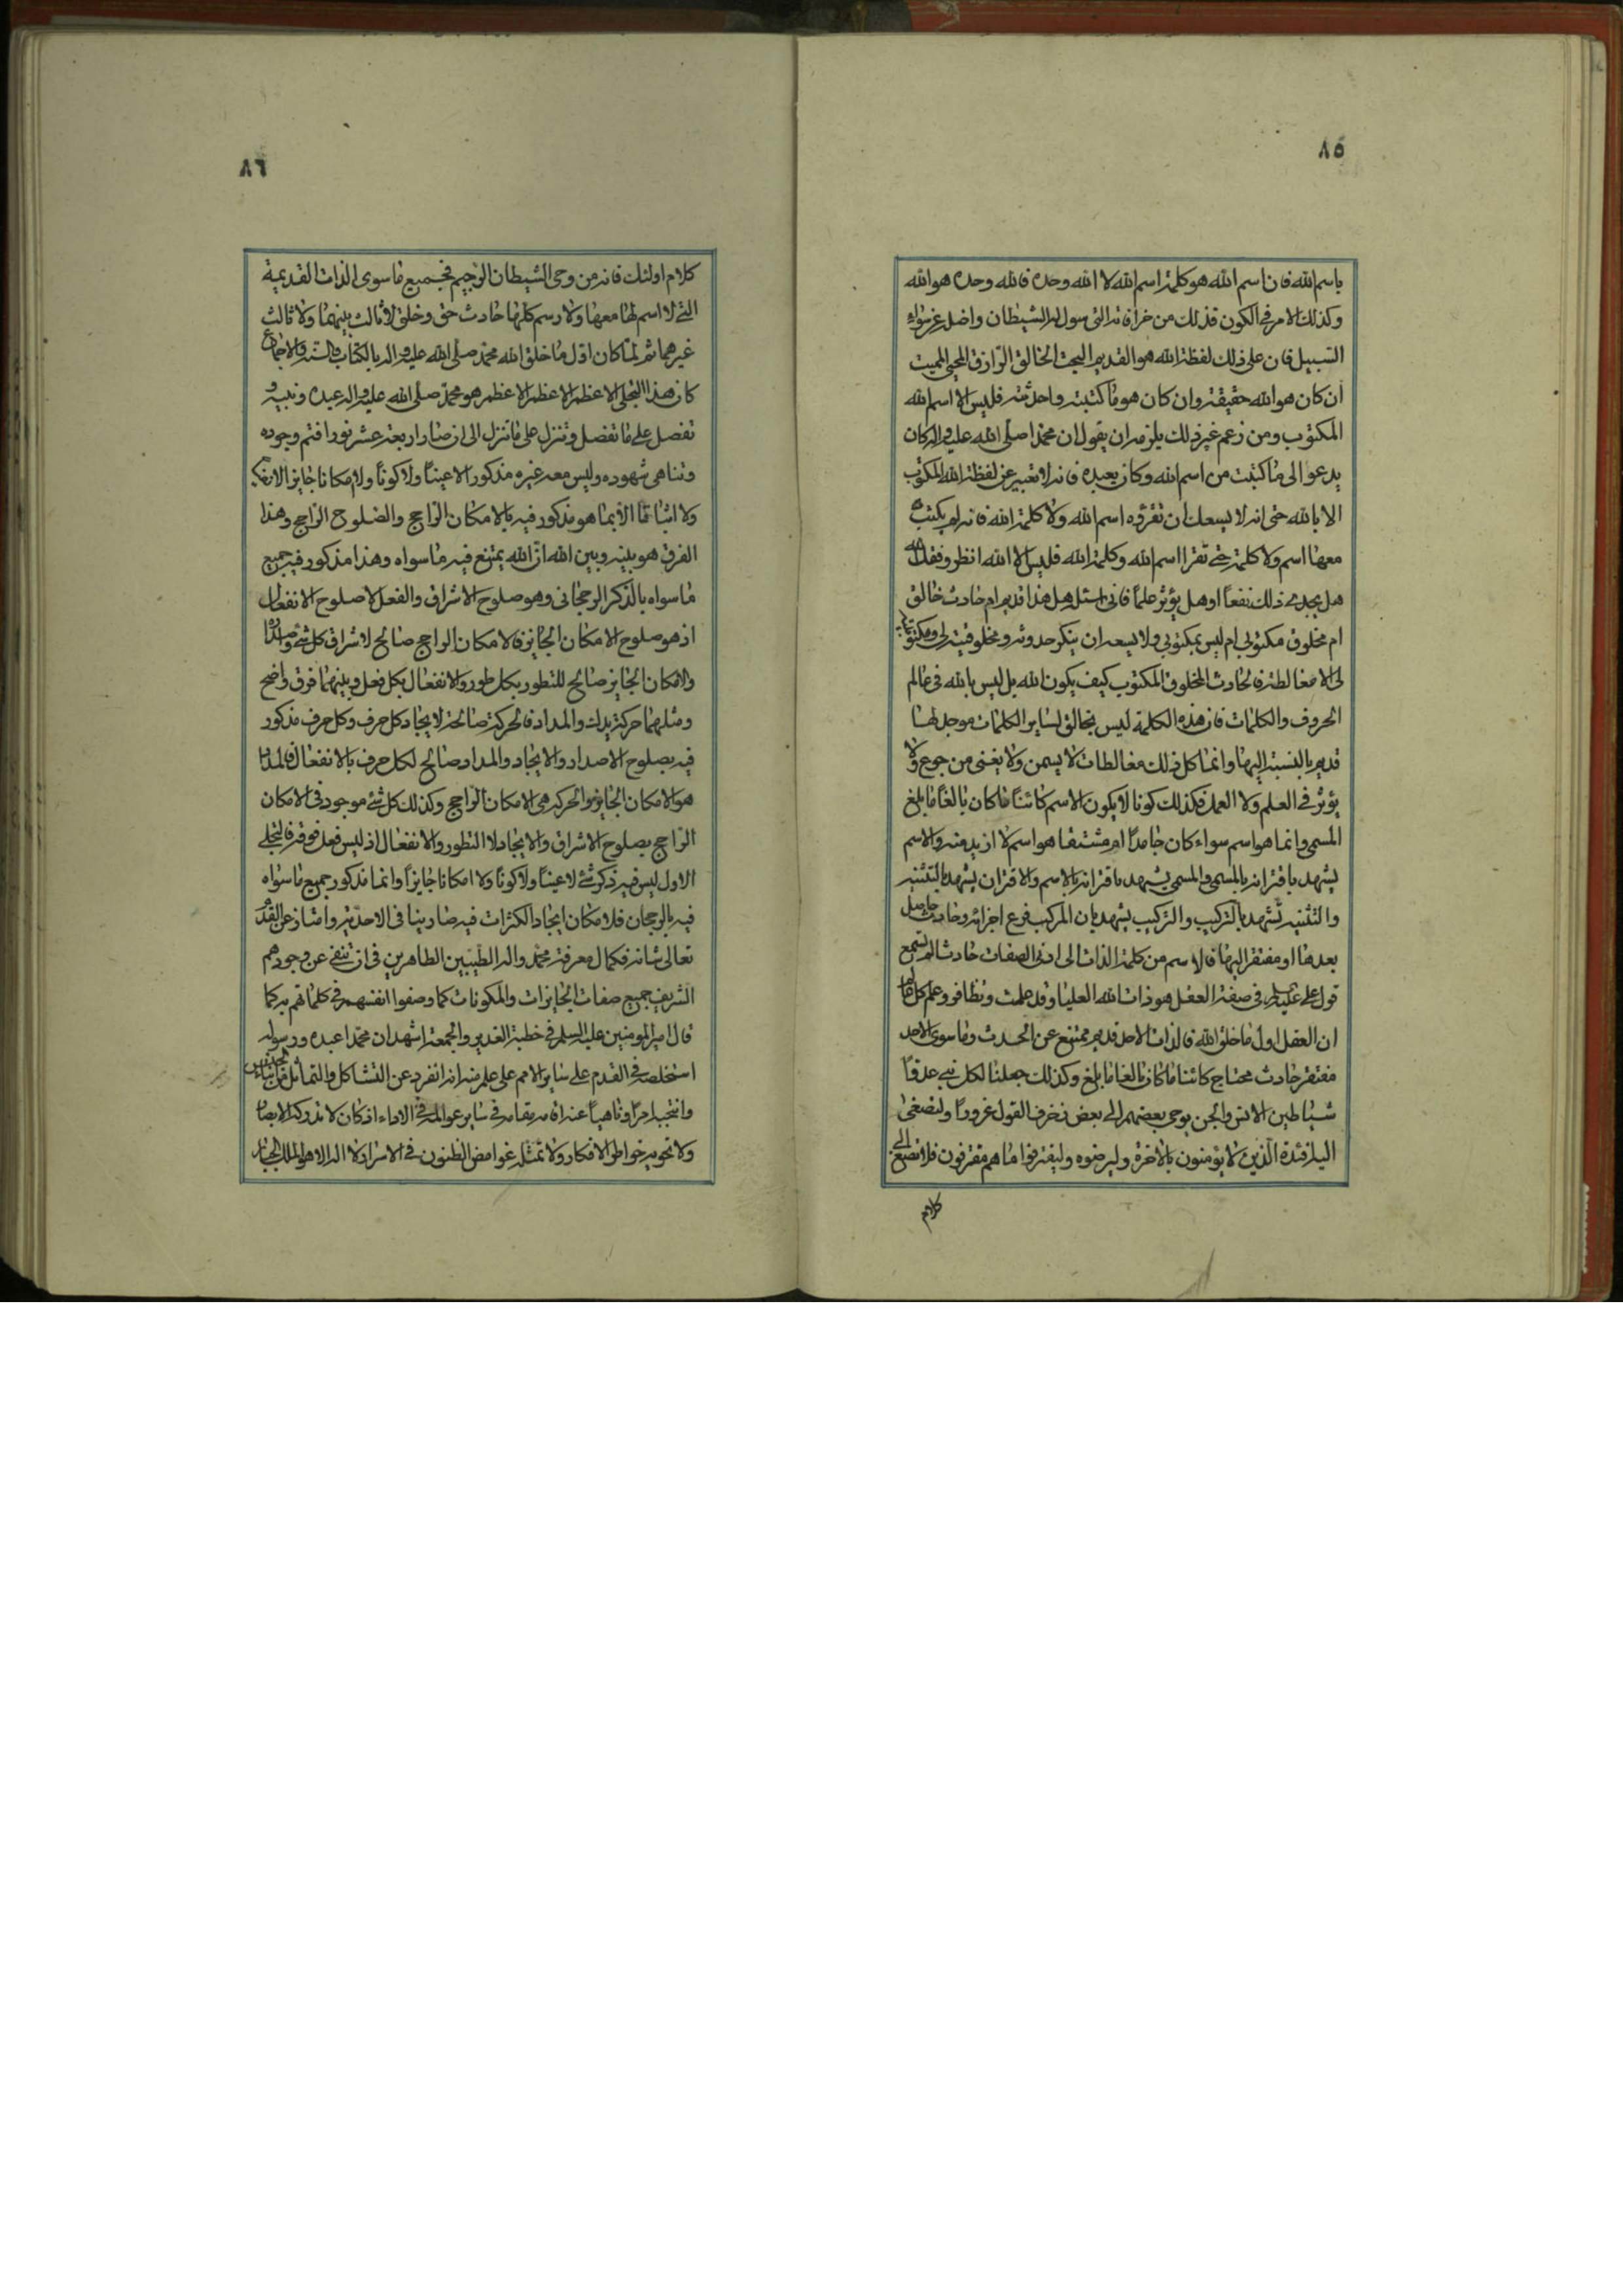 ٨٥
باسم الله فان اسم الله هو كلمة اسم الله لا الله وحده فالله وحده هو الله
وكذلك الامر في الكون فذلك من خرافاته التي سول له الشيطان واضل عن سواء
السبيل فان على ذلك لفظة الله هو القديم البحت الخالق الرازق المحيي المميت
ان كان هو الله حقيقة وان كان هو ما كتبته واحدثته فليس الا اسم الله
المكتوب ومن زعم غير ذلك يلزمه ان يقول ان محمدا صلى الله عليه واله كان
يدعو الى ما كتبت من اسم الله وكان يعبده فانه لا تعبير عن لفظة الله المكتوب
الا بالله حتى انه لا يسعك ان تقرؤه اسم الله ولا كلمة الله فانه لم يكتب
معها اسم ولا كلمة حتى تقرا اسم الله وكلمة الله فليس الا الله انظر وفقك الله
هل يجدي ذلك نفعاً او هل يؤثر علماً فاني اسئل هل هذا قديم ام حادث خالق
ام مخلوق مكتوبي ام ليس بمكتوبي ولا يسعه ان ينكر حدوثه ومخلوقيته لي ومكتوبيته
لي الا مغالطة فالحادث المخلوق المكتوب كيف يكون الله بل ليس بالله في عالم
الحروف والكلمات فان هذه الكلمة ليس بخالق لساير الكلمات موجد لها
قديم بالنسبة اليها وانما كل ذلك مغالطات لا يسمن ولا يغني من جوع ولا
يؤثر في العلم ولا العمل فكذلك كونا لا يكون الاسم كائناً ما كان بالغاً ما بلغ
المسمى وانما هو اسم سواء كان جامداً او مشتقا هو اسم لا ازيد منه والاسم
يشهد باقترانه بالمسمى والمسمى يشهد باقترانه بالاسم والاقتران يشهد بالتثنية
والتثنية تشهد بالتركيب والتركيب يشهد بان المركب فرع اجزائه وحادث حاصل
بعدها او مفتقر اليها فالاسم من كلمة الذات الى ادنى الصفات حادث الم تسمع
قول علي عليه السلم في صفة العقل هو ذات الله العليا وقد علمت وتظافر وعلم كل
ان العقل اول ما خلق الله فالذات الاحد قديم ممتنع عن الحدث وما سوى الاحد
مفتقر حادث محتاج كائنا ما كان بالغا ما بلغ وكذلك جعلنا لكل نبي عدواً
شياطين الانس والجن يوحي بعضهم الى بعض زخرف القول غروراً ولتصغى
اليه افئدة الذين لا يؤمنون بالاخرة وليرضوه وليقترفوا ما هم مقترفون فلا تصغ الى
كلام
٨٦
كلام اولئك فانه من وحي الشيطان الرجيم فجميع ما سوى الذات القديمة
التي لا اسم لها معها ولا رسم كلها حادث حق وخلق لا ثالث بينهما ولا ثالث
غيرهما ثم لما كان اول ما خلق الله محمد صلى الله عليه واله بالكتاب والسنة والاجماع
كان هذا التجلي الاعظم الاعظم الاعظم هو محمد صلى الله عليه واله عبده ونبيه و
تفصل على ما تفصل وتنزل على ما تنزل الى ان صار اربعة عشر نورا فتم وجوده
وتناهى شهوده وليس معه غيره مذكور الا عيناً ولا كوناً ولا امكانا جايزا
ولا اثباتا الا بما هو مذكور فيه بالامكان الراجح والصلوح الراجح وهذا
الفرق هو بينه وبين الله ان الله يمتنع فيه ما سواه وهذا مذكور فيه جميع
ما سواه بالذكر الرجحاني وهو صلوح الاشراق والفعل لا صلوح الانفعال
اذ هو صلوح الامكان الجايز فالامكان الراجح صالح لاشراق كل شئ
والامكان الجايز صالح للتطور بكل طور والانفعال بكل فعل وبينهما فرق واضح
ومثلهما حركة يدك والمداد فالحركة صالحة لايجاد كل حرف وكل حرف مذكور
فيه بصلوح الاصدار والايجاد والمداد صالح لكل حرف بالانفعال فالمداد
هو الامكان الجايز والحركة هي الامكان الراجح وكذلك كل شئ موجود في الامكان
الراجح بصلوح الاشراق والايجاد لا التطور والانفعال اذ ليس فعل فوقه فالتجلي
الاول ليس فيه ذكر شئ لا عيناً ولا كوناً ولا امكانا جايزاً وانما مذكور جميع ما سواه
فيه بالرجحان فلامكان ايجاد الكثرات فيه صار ينافي الاحدية وامتاز عن القديم
تعالى شانه فكمال معرفة محمد واله الطيبين الطاهرين في ان تنفي عن وجودهم
الشريف جميع صفات الجايزات والمكونات كما وصفوا انفسهم في كلماتهم كما
قال امير المومنين عليه السلم في خطبة الغدير والجمعة اشهد ان محمدا عبده ورسوله
استخلصه في القدم على ساير الامم على علم منه انه انفرد عن التشاكل والتماثل من ابناء الجنس
وانتجبه امراً وناهياً عنه اقامه مقامه في ساير عوالمه في الاداء اذ كان لا تدركه الابصار
ولا تحويه خواطر الافكار ولا تمثله غوامض الظنون في الاسرار لا اله الا هو الملك الجبار